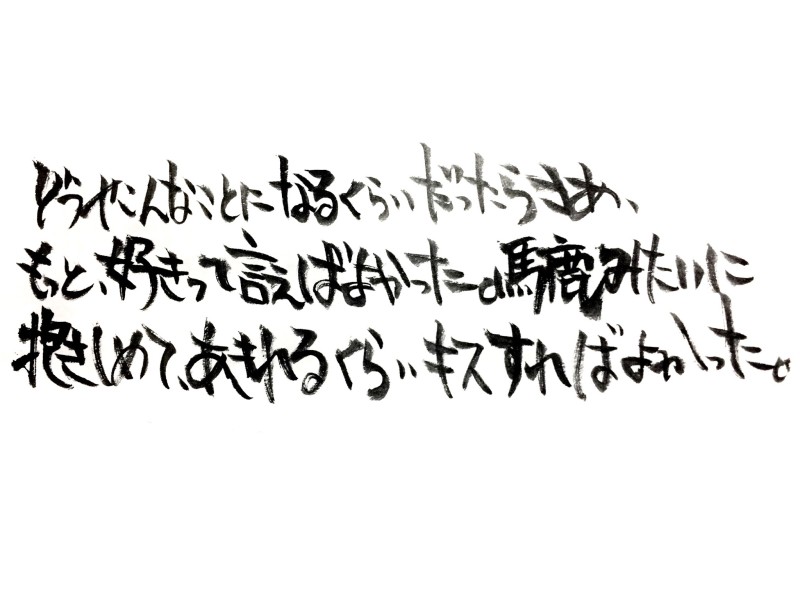 どうせこんなことになるくらいだったらさぁ、
もっと、好きって言えばよかった。馬鹿みたいに
抱きしめて、あきれるくらいキスすればよかった。